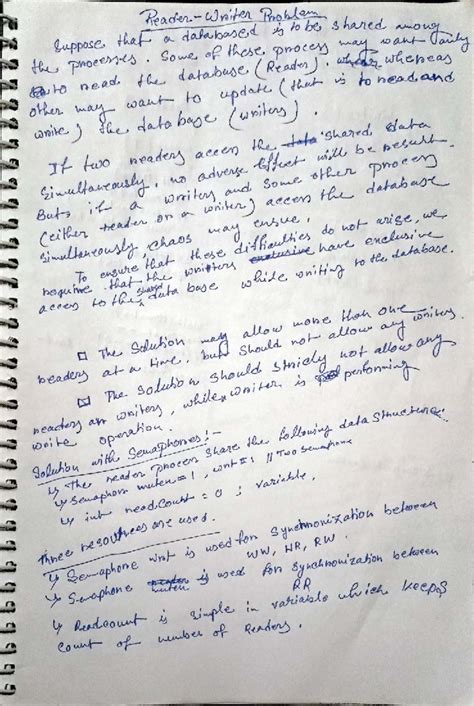 Reader-Writer Problem
Suppose that a databased is to be shared among
the processes. Some of these process may want only
to read the database (Reader), whereas
other may want to update (that is to read and
write) the database (writers).
If two readers access the shared data
simultaneously, no adverse effect will be result.
But if a writers and some other process
(either reader or a writer) access the database
simultaneously chaos may ensue.
To ensure that these difficulties do not arise, we
require that the writers have exclusive
access to the shared data base while writing to the database.
The Solution may allow more than one
readers at a time, but should not allow any writers.
The Solution should strictly not allow any
readers or writers, while writer is performing
write operation.
Solution with Semaphones:-
The reader process share the following data structure:
Semaphore mutex = 1, wrt = 1 // Two Semaphore
int readcount = 0 ; variable.
Three resources are used.
Semaphone wrt is used for synchronization between
WW, WR, RW.
Semaphone mutex is used for synchronization between
RR
Readcount is simple int variable which keeps
count of number of Readers.